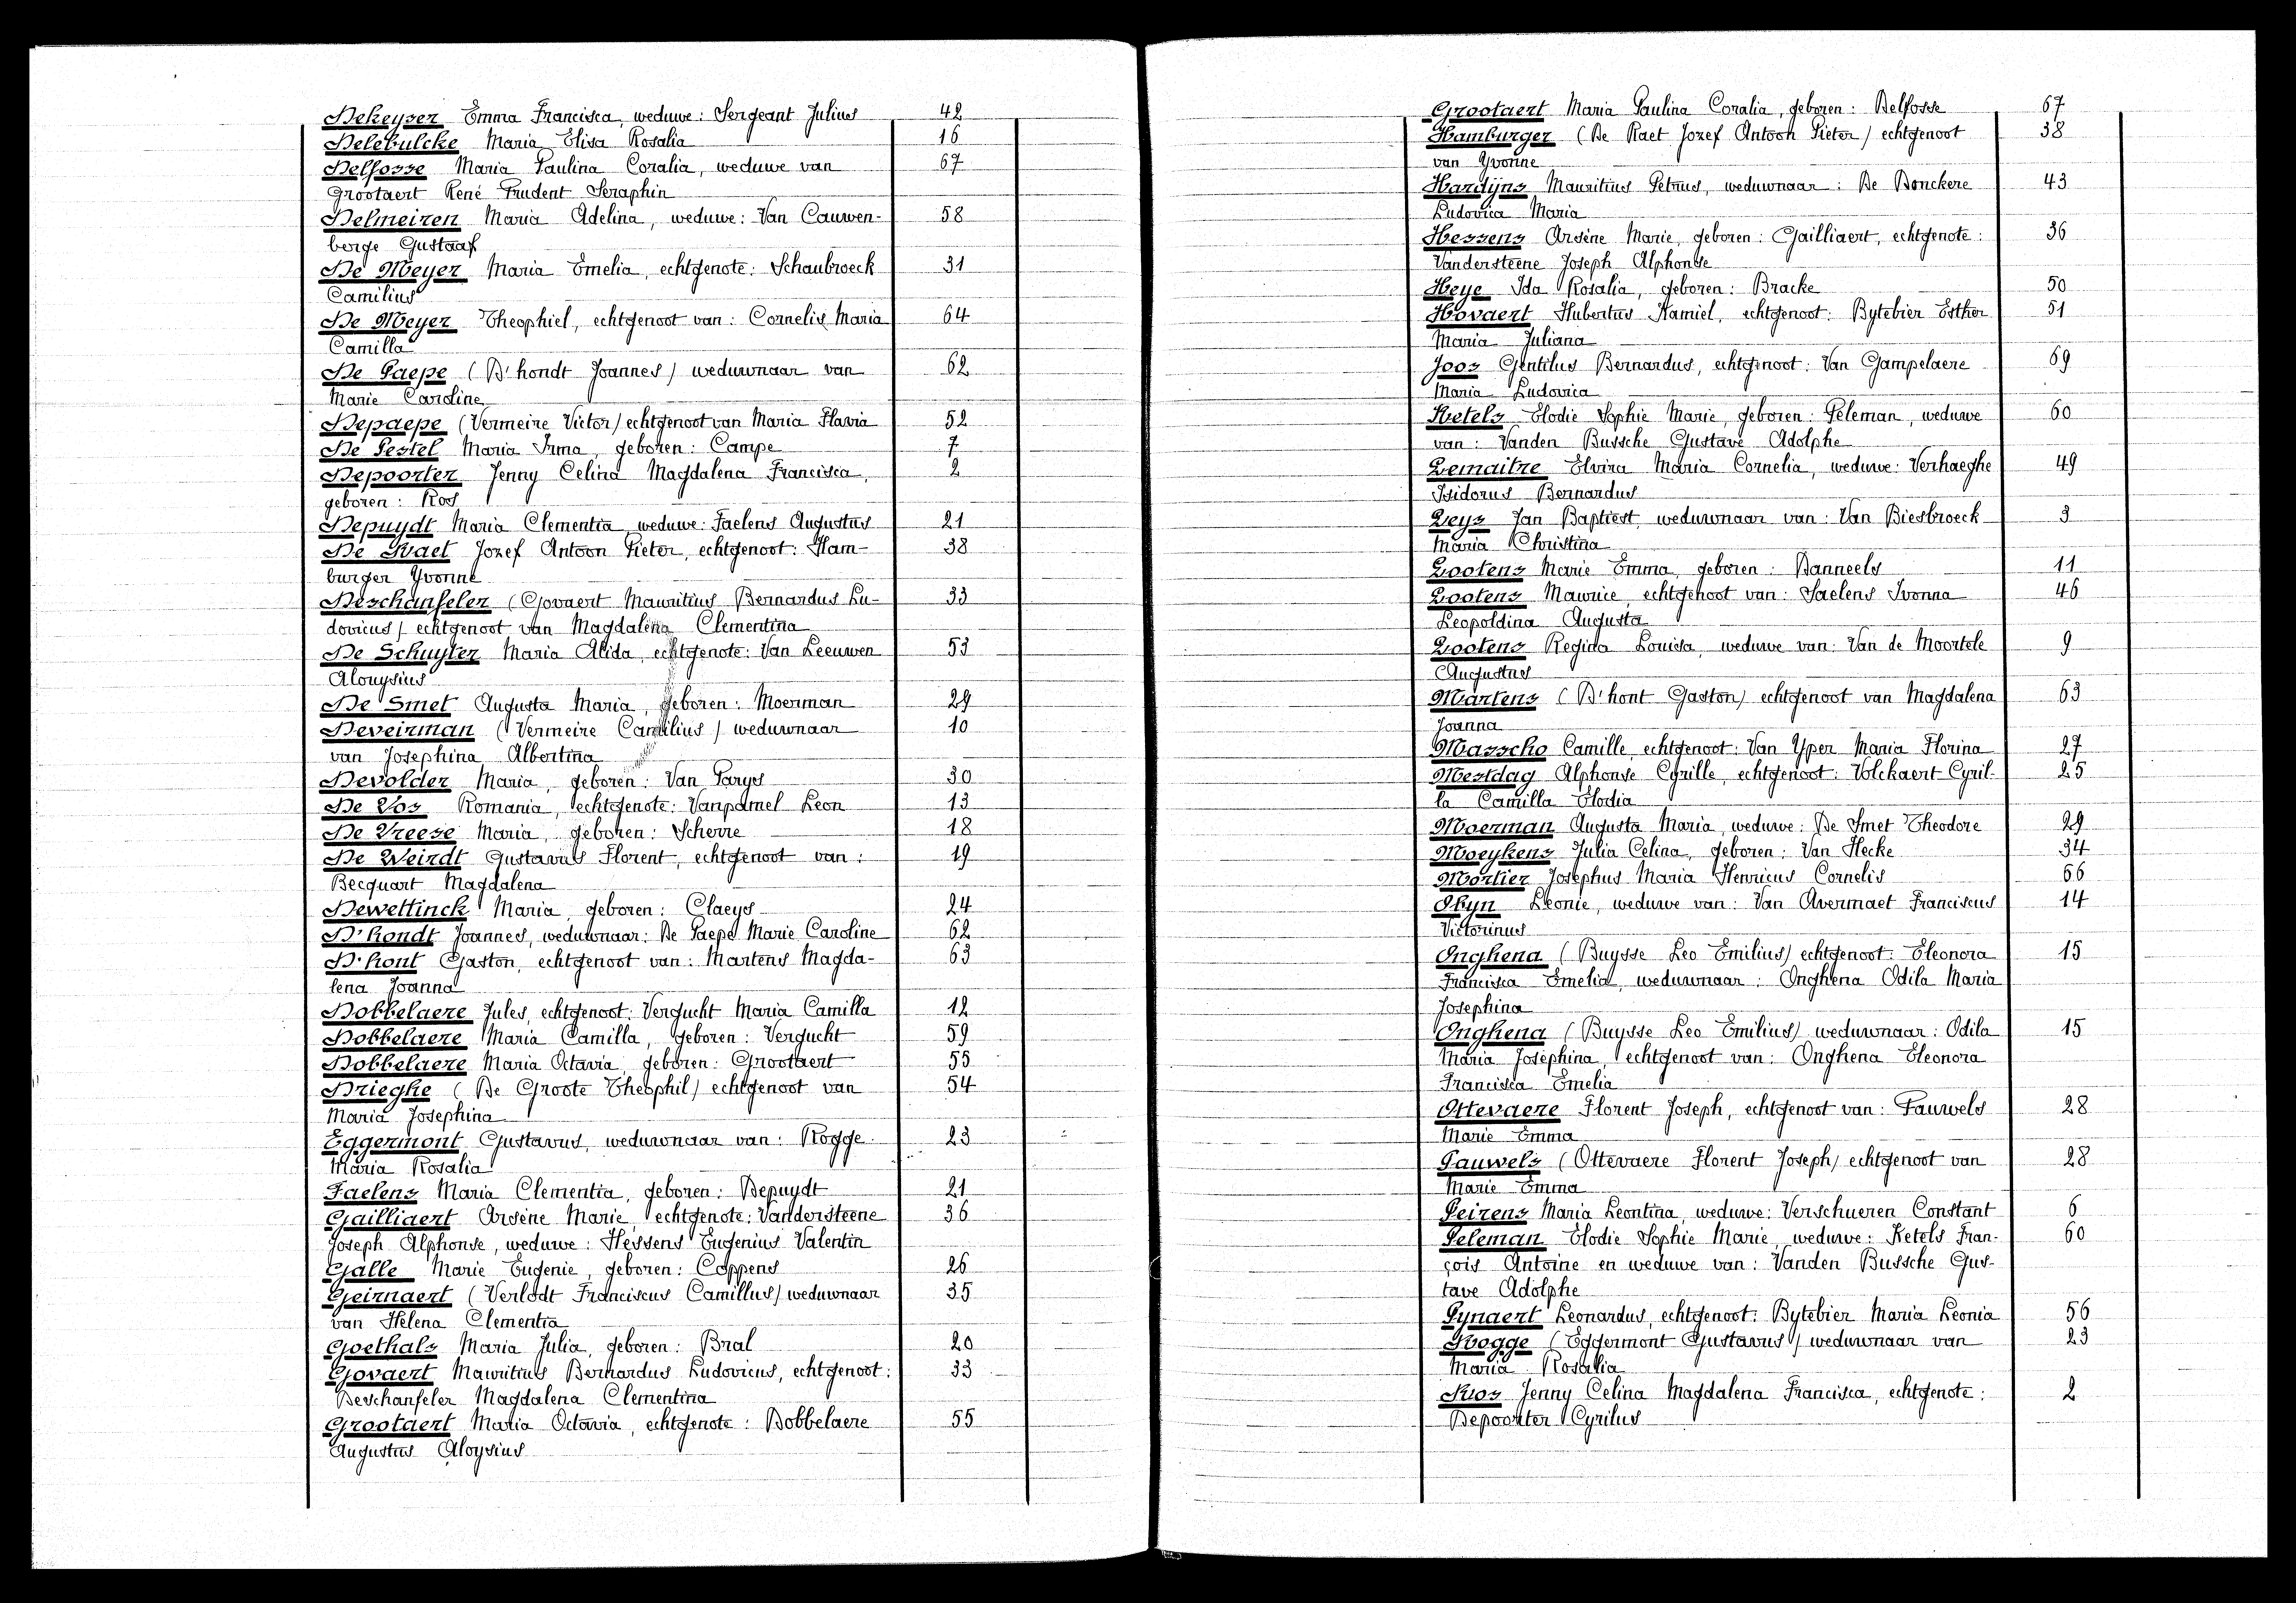 Dekeyser Emma Francisca, weduwe: Sergeant Julius 42
Delebulcke Maria Elisa Rosalia 16
Delfosse Maria Paulina Coralia, weduwe van 67
Grootaert René Prudent Seraphin
Delmeiren Maria Adelina, weduwe: Van Cauwen- 58
berge Gustaaf
De Meyer Maria Emelia, echtgenote: Schaubroeck 31
Camilius
De Meyer Theophiel, echtgenoot van: Cornelis Maria 64
Camilla
De Paepe (D'hondt Joannes) weduwnaar van 62
Marie Caroline
Depaepe (Vermeire Victor) echtgenoot van Maria Flavia 52
De Pestel Maria Irma, geboren: Campe 7
Depoorter Jenny Celina Magdalena Francisca, 2
geboren: Roos
Depuydt Maria Clementia, weduwe: Faelens Augustus 21
De Raet Jozef Antoon Pieter, echtgenoot: Ham- 38
burger Yvonne
Deschanfeler (Govaert Mauritius Bernardus Lu- 33
dovicus) echtgenoot van Magdalena Clementina
De Schuyter Maria Alida, echtgenote: Van Leeuwen 53
Alouysius
De Smet Augusta Maria, geboren: Moerman 29
Deveirman (Vermeire Camilius) weduwnaar 10
van Josephina Albertina
Devolder Maria, geboren: Van Parys 30
De Vos Romania, echtgenote: Vanpamel Leon 13
De Vreese Maria, geboren: Scherre 18
De Weirdt Gustavus Florent, echtgenoot van: 19
Becquart Magdalena
Dewettinck Maria, geboren: Claeys 24
D'hondt Joannes, weduwnaar: De Paepe Marie Caroline 62
D'hont Gaston, echtgenoot van: Martens Magda- 63
lena Joanna
Dobbelaere Jules, echtgenoot: Vergucht Maria Camilla 12
Dobbelaere Maria Camilla, geboren: Vergucht 59
Dobbelaere Maria Octavia, geboren: Grootaert 55
Drieghe (De Groote Theophil) echtgenoot van 54
Maria Josephina
Eggermont Gustavus, weduwnaar van: Rogge 23
Maria Rosalia
Faelens Maria Clementia, geboren: Depuydt 21
Gailliaert Arsène Marie, echtgenote: Vandersteene 36
Joseph Alphonse, weduwe: Hessens Eugenius Valentin
Galle Marie Eugenie, geboren: Coppens 26
Geirnaert (Verlodt Franciscus Camillus) weduwnaar 35
van Helena Clementia
Goethals Maria Julia, geboren: Bral 20
Govaert Mauritius Bernardus Ludovicus, echtgenoot: 33
Deschanfeler Magdalena Clementina
Grootaert Maria Octavia, echtgenote: Dobbelaere 55
Augustus Aloysius
Grootaert Maria Paulina Coralia, geboren: Delfosse 67
Hamburger (De Raet Jozef Antoon Pieter) echtgenoot 38
van Yvonne
Hardijns Mauritius Petrus, weduwnaar: De Donckere 43
Ludovica Maria
Hessens Arsène Marie, geboren: Gailliaert, echtgenote: 36
Vandersteene Joseph Alphonse
Heye Ida Rosalia, geboren: Bracke 50
Hovaert Hubertus Kamiel, echtgenoot: Bytebier Esther 51
Maria Juliana
Joos Gentilus Bernardus, echtgenoot: Van Gampelaere 69
Maria Ludovica
Ketels Elodie Sophie Marie, geboren: Peleman, weduwe 60
van: Vanden Bussche Gustave Adolphe
Lemaitre Elvira Maria Cornelia, weduwe: Verhaeghe 49
Isidorus Bernardus
Leys Jan Baptiest, weduwnaar van: Van Biesbroeck 3
Maria Christina
Lootens Marie Emma, geboren: Danneels 11
Lootens Maurice, echtgenoot van: Saelens Ivonna 46
Leopoldina Augusta
Lootens Regina Louisa, weduwe van: Van de Moortele 9
Augustus
Martens (D'hont Gaston) echtgenoot van Magdalena 63
Joanna
Masscho Camille, echtgenoot: Van Yper Maria Florina 27
Mestdag Alphonse Cyrille, echtgenoot: Volckaert Cyril- 25
la Camilla Elodia
Moerman Augusta Maria, weduwe: De Smet Theodore 29
Moeykens Julia Celina, geboren: Van Hecke 34
Mortier Josephus Maria Henricus Cornelis 66
Obyn Leonie, weduwe van: Van Avermaet Franciscus 14
Victorinus
Onghena (Buysse Leo Emilius) echtgenoot: Eleonora 15
Francisca Emelia, weduwnaar: Onghena Odila Maria
Josephina
Onghena (Buysse Leo Emilius) weduwnaar: Odila 15
Maria Josephina, echtgenoot van: Onghena Eleonora
Francisca Emelia
Ottevaere Florent Joseph, echtgenoot van: Pauwels 28
Marie Emma
Pauwels (Ottevaere Florent Joseph) echtgenoot van 28
Marie Emma
Peirens Maria Leontina, weduwe: Verschueren Constant 6
Peleman Elodie Sophie Marie, weduwe: Ketels Fran- 60
çois Antoine en weduwe van: Vanden Bussche Gus-
tave Adolphe
Pynaert Leonardus, echtgenoot: Bytebier Maria Leonia 56
Rogge (Eggermont Gustavus) weduwnaar van 23
Maria Rosalia
Roos Jenny Celina Magdalena Francisca, echtgenote: 2
Depoorter Cyrilus